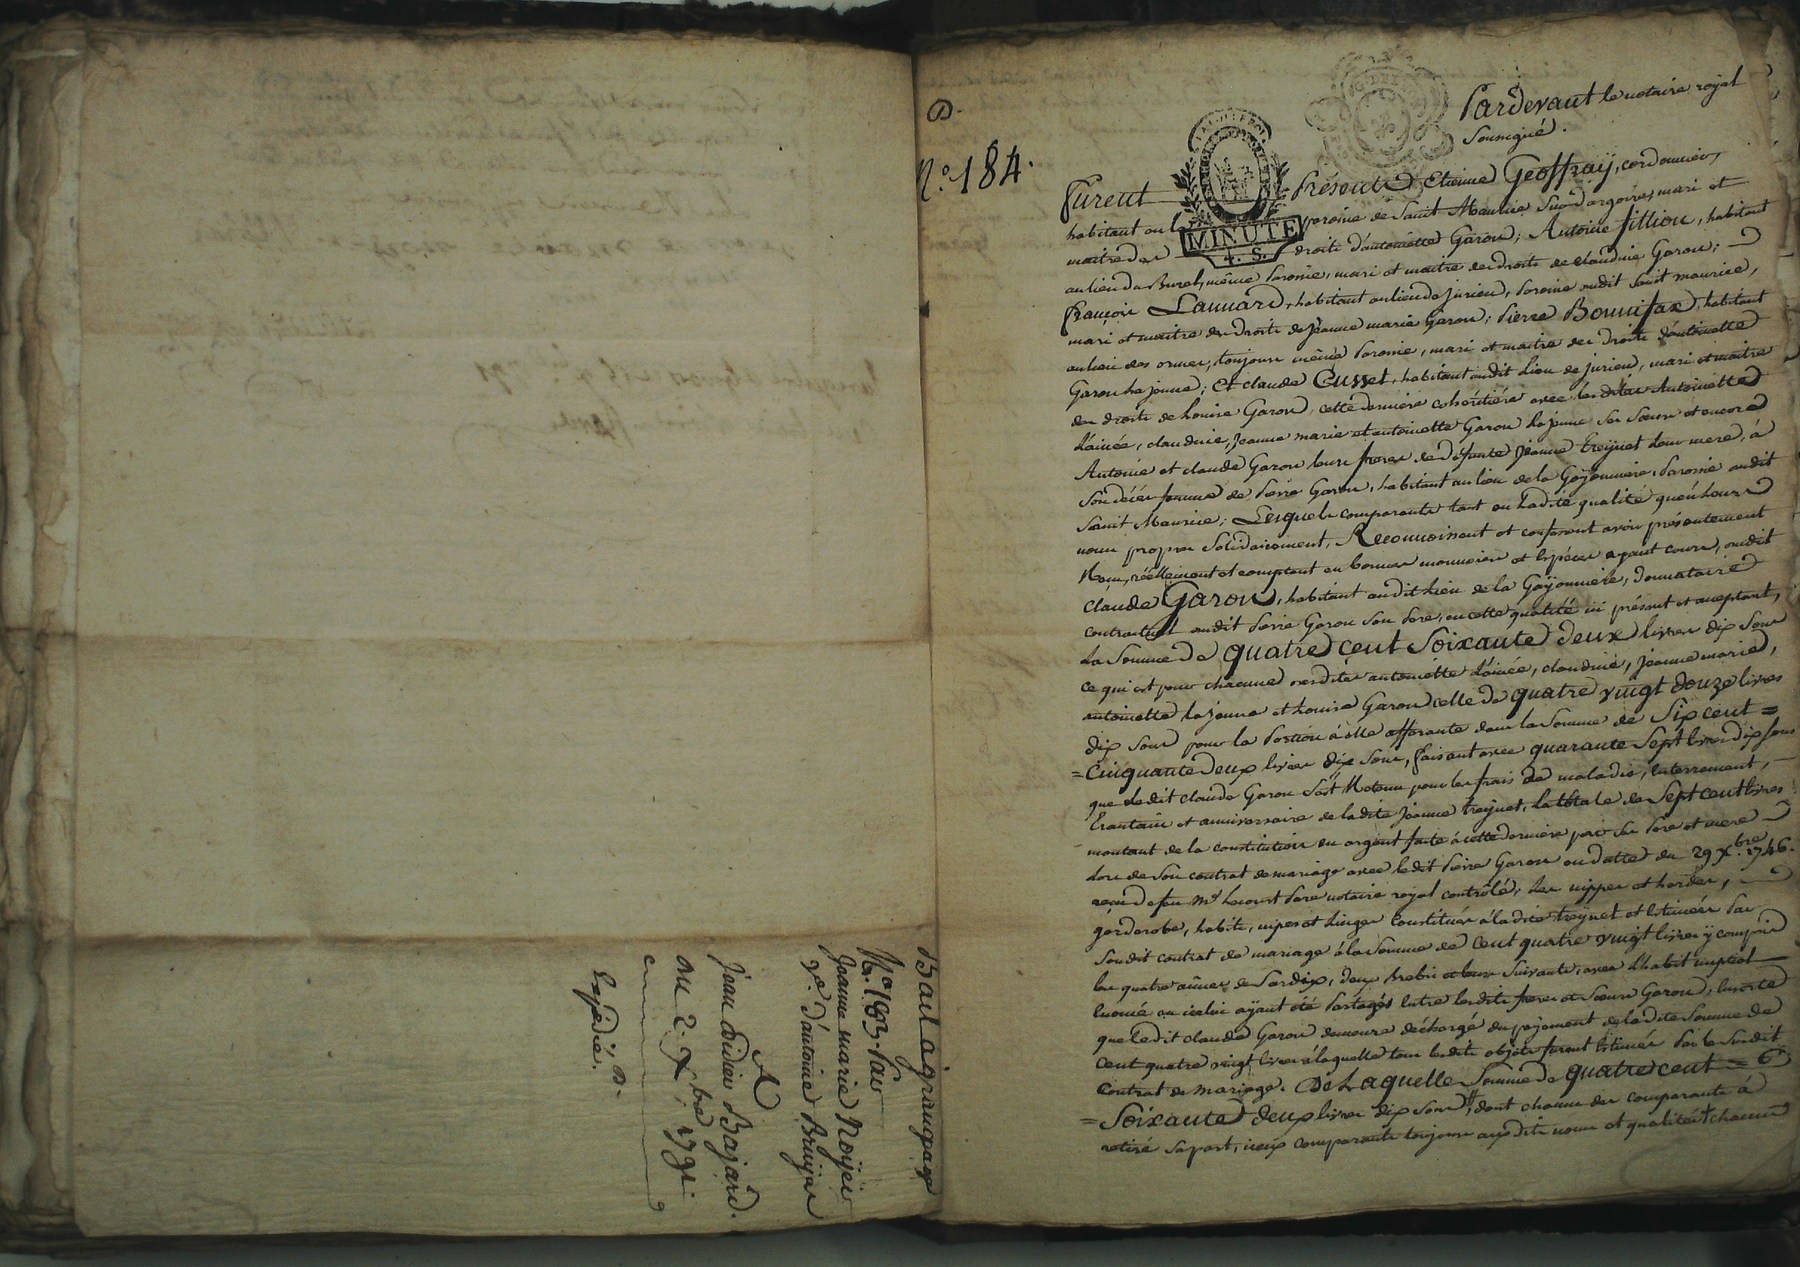 Bail a grangeage
N.º 183. Par
Jeanne marie Noÿer
v.e d'antoine Bruyas
A
jean didier Bajard.
Du 2. Xbre 1791.
Expédié. D.
D.
N.º 184.
Pardevant le notaire royal
Soussigné.
MINUTE
4. S.
furent Présents, Etienne Geoffraÿ, cordonnier,
habitant au paroisse de Saint Maurice Sur dargoire, mari et
maitre des droits d'antoinette Garon; Antoine fillion, habitant
au lieu du Buret, même Paroisse, mari et maitre des droits de claudine Garon;
françois Lannard, habitant au lieu de jurieu, Paroisse audit Saint maurice,
mari et maitre des droits de jeanne marie Garon; Pierre Bonnifax, habitant
au lieu des ormes, toujours même Paroisse, mari et maitre des droits d'antoinette
Garon La jeune; Et claude Cusset, habitant audit Lieu de jurieu, mari et maitre
des droits de Louise Garon, cette derniere cohéritiére avec lesdites Antoinette
L'ainée, claudine, jeanne marie et antoinette Garon La jeune Ses Sœurs et encore
Antoine et claude Garon leurs freres de défunte jeanne treynet Leur mere, à
Son décès femme de Pierre Garon, habitant au lieu de la Goÿonniere, Paroisse audit
Saint Maurice; Lesquels comparants tant en Ladite qualité qu'en Leurs
noms propres Solidairement, Reconnoissent et confessent avoir présentement
Reçu, réëllement et comptant en bonnes monnoies et Espéces ayant cours, dudit
claude Garon, habitant audit Lieu de la Goÿonniere, donnataire
contractuel dudit Pierre Garon Son Pere, en cette qualité ici présent et acceptant,
La Somme de quatre cent Soixante deux livres dix Sous
ce qui est pour chacune desdites antoinette L'ainée, claudine, jeanne marie,
antoinette La jeune et Louise Garon celle de quatre vingt douze livres
dix Sous pour la Portion à elle afferante dans la Somme de Six cent =
= Cinquante deux livres dix Sous, faisant avec quarante Sept livres dix Sous
que Ledit claude Garon S'est Retenu pour les frais de maladie, Enterrement,
Trantain et anniversaire de ladite Jeanne treynet, la totale de Sept cent livres
montant de la constitution en argent faite à cette derniere par Ses Pere et mere
Lors de Son contrat de mariage avec ledit Pierre Garon en datte du 29 Xbre 1746.
reçu de feu Me Pere notaire royal contrôlé; Les nippes et hardes,
garderobe, habits, nipes et Linges Constitués à ladite treynet et Estimées Par
Sondit contrat de mariage à la Somme de cent quatre vingt livres ÿ compris
les quatre aunes de Sardix, deux Brebis et leurs Suivants, avec L'habit nuptial
Enoncé en icelui ayant été Partagés Entre lesdits freres et Sœurs Garon, Ensorte
que Ledit claude Garon demeure déchargé du payement de ladite Somme de
Cent quatre vingt livres à laquelle tous lesdits objets furent Estimés Par le Susdit
Contrat de mariage. De Laquelle Somme de quatre cent =
= Soixante deux livres dix Sous, dont chacun des comparants à
retiré Sa part, iceux comparants toujours auxdits noms et qualités + chacun